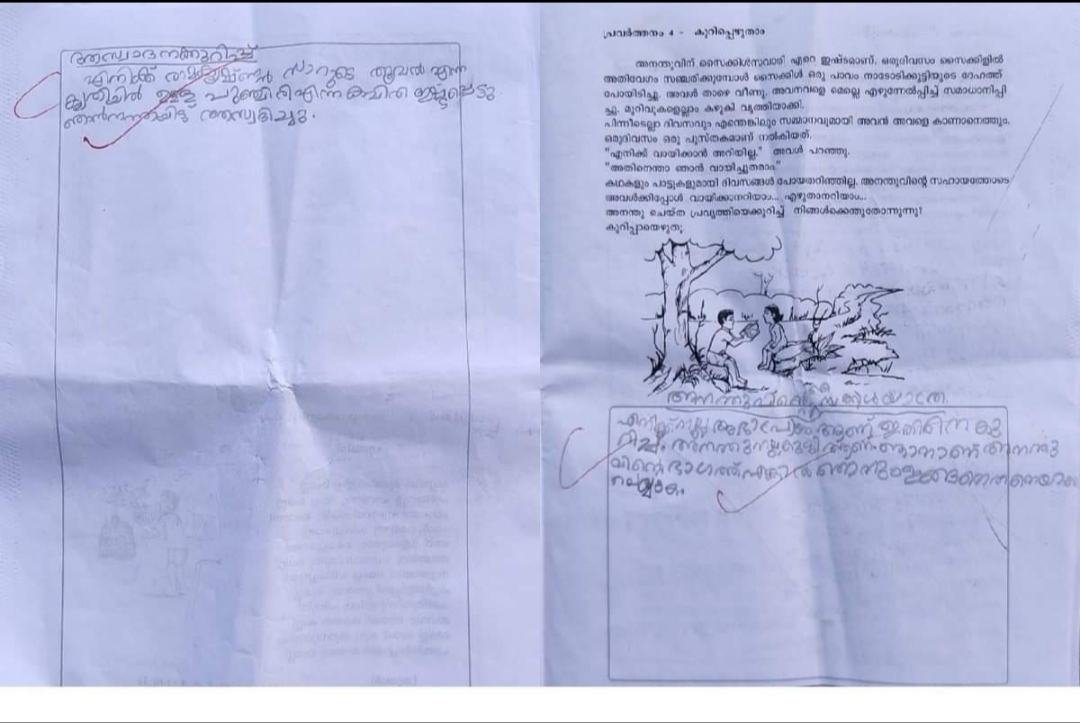 ആസ്വാദനക്കുറിപ്പ്
എനിക്ക് സാറുടെ തൂവൽ എന്ന
കൃതിയിൽ ഉള്ള പുഞ്ചിരി എന്ന കവിത ഇഷ്ടപ്പെട്ടു
ആസ്വദിച്ചു.
പ്രവർത്തനം 4 - കുറിപ്പെഴുതാം
അനന്തുവിന് സൈക്കിൾസവാരി ഏറെ ഇഷ്ടമാണ്. ഒരുദിവസം സൈക്കിളിൽ
അതിവേഗം സഞ്ചരിക്കുമ്പോൾ സൈക്കിൾ ഒരു പാവം നാടോടിക്കുട്ടിയുടെ ദേഹത്ത്
പോയിടിച്ചു. അവൾ താഴെ വീണു. അവനവളെ മെല്ലെ എഴുന്നേൽപ്പിച്ച് സമാധാനിപ്പി
ച്ചു. മുറിവുകളെല്ലാം കഴുകി വൃത്തിയാക്കി.
പിന്നീടെല്ലാ ദിവസവും എന്തെങ്കിലും സമ്മാനവുമായി അവൻ അവളെ കാണാനെത്തും.
ഒരുദിവസം ഒരു പുസ്തകമാണ് നൽകിയത്.
"എനിക്ക് വായിക്കാൻ അറിയില്ല." അവൾ പറഞ്ഞു.
"അതിനെന്താ ഞാൻ വായിച്ചുതരാം"
കഥകളും പാട്ടുകളുമായി ദിവസങ്ങൾ പോയതറിഞ്ഞില്ല. അനന്തുവിന്റെ സഹായത്തോടെ
അവൾക്കിപ്പോൾ വായിക്കാനറിയാം... എഴുതാനറിയാം...
അനന്തു ചെയ്ത പ്രവൃത്തിയെക്കുറിച്ച് നിങ്ങൾക്കെന്തുതോന്നുന്നു?
കുറിപ്പായെഴുതൂ.
അനന്തുവിന്റെ സൈക്കിൾയാത്ര
എനിക്ക് നല്ല അഭിപ്രായം ആണ് ഇതിനെ കു
റിച്ച്. അനന്തു നല്ല കുട്ടി ആണ്. ഞാനാണ് അനന്തു
വിന്റെ ഭാഗത്ത് എങ്കിൽ ഞാനും